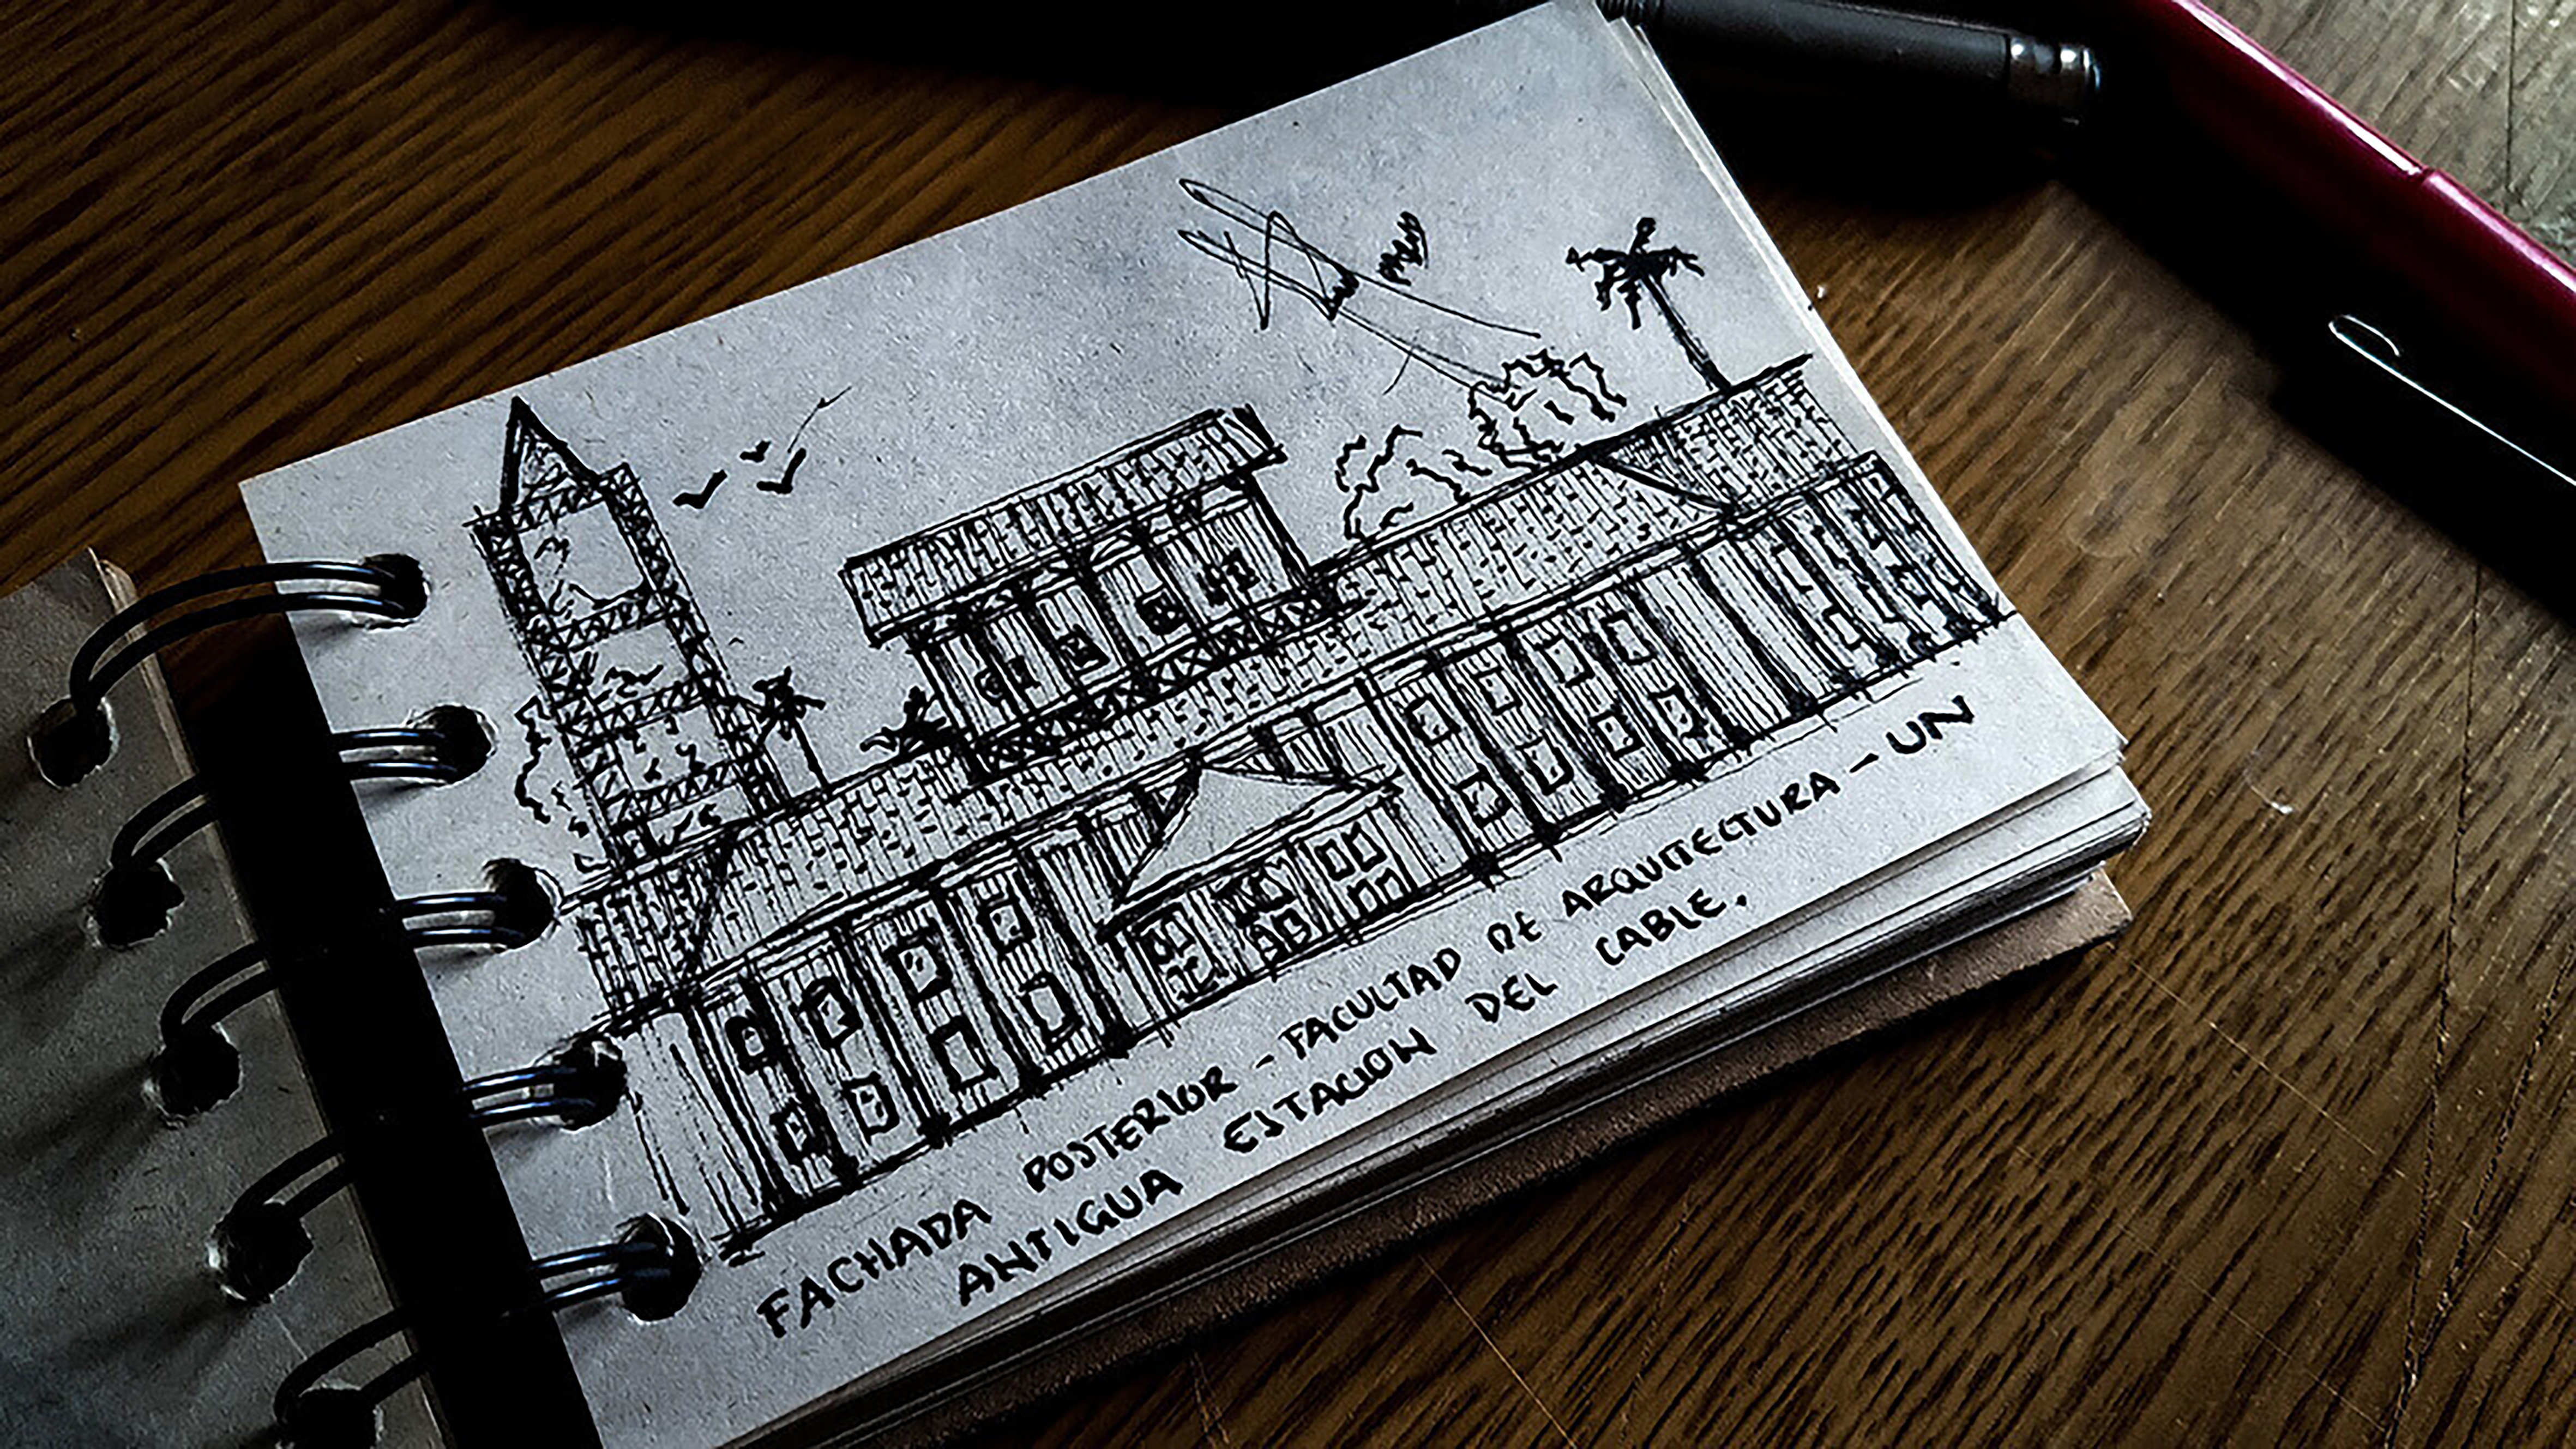 FACHADA POSTERIOR - FACULTAD DE ARQUITECTURA - UN
ANTIGUA ESTACION DEL CABLE.